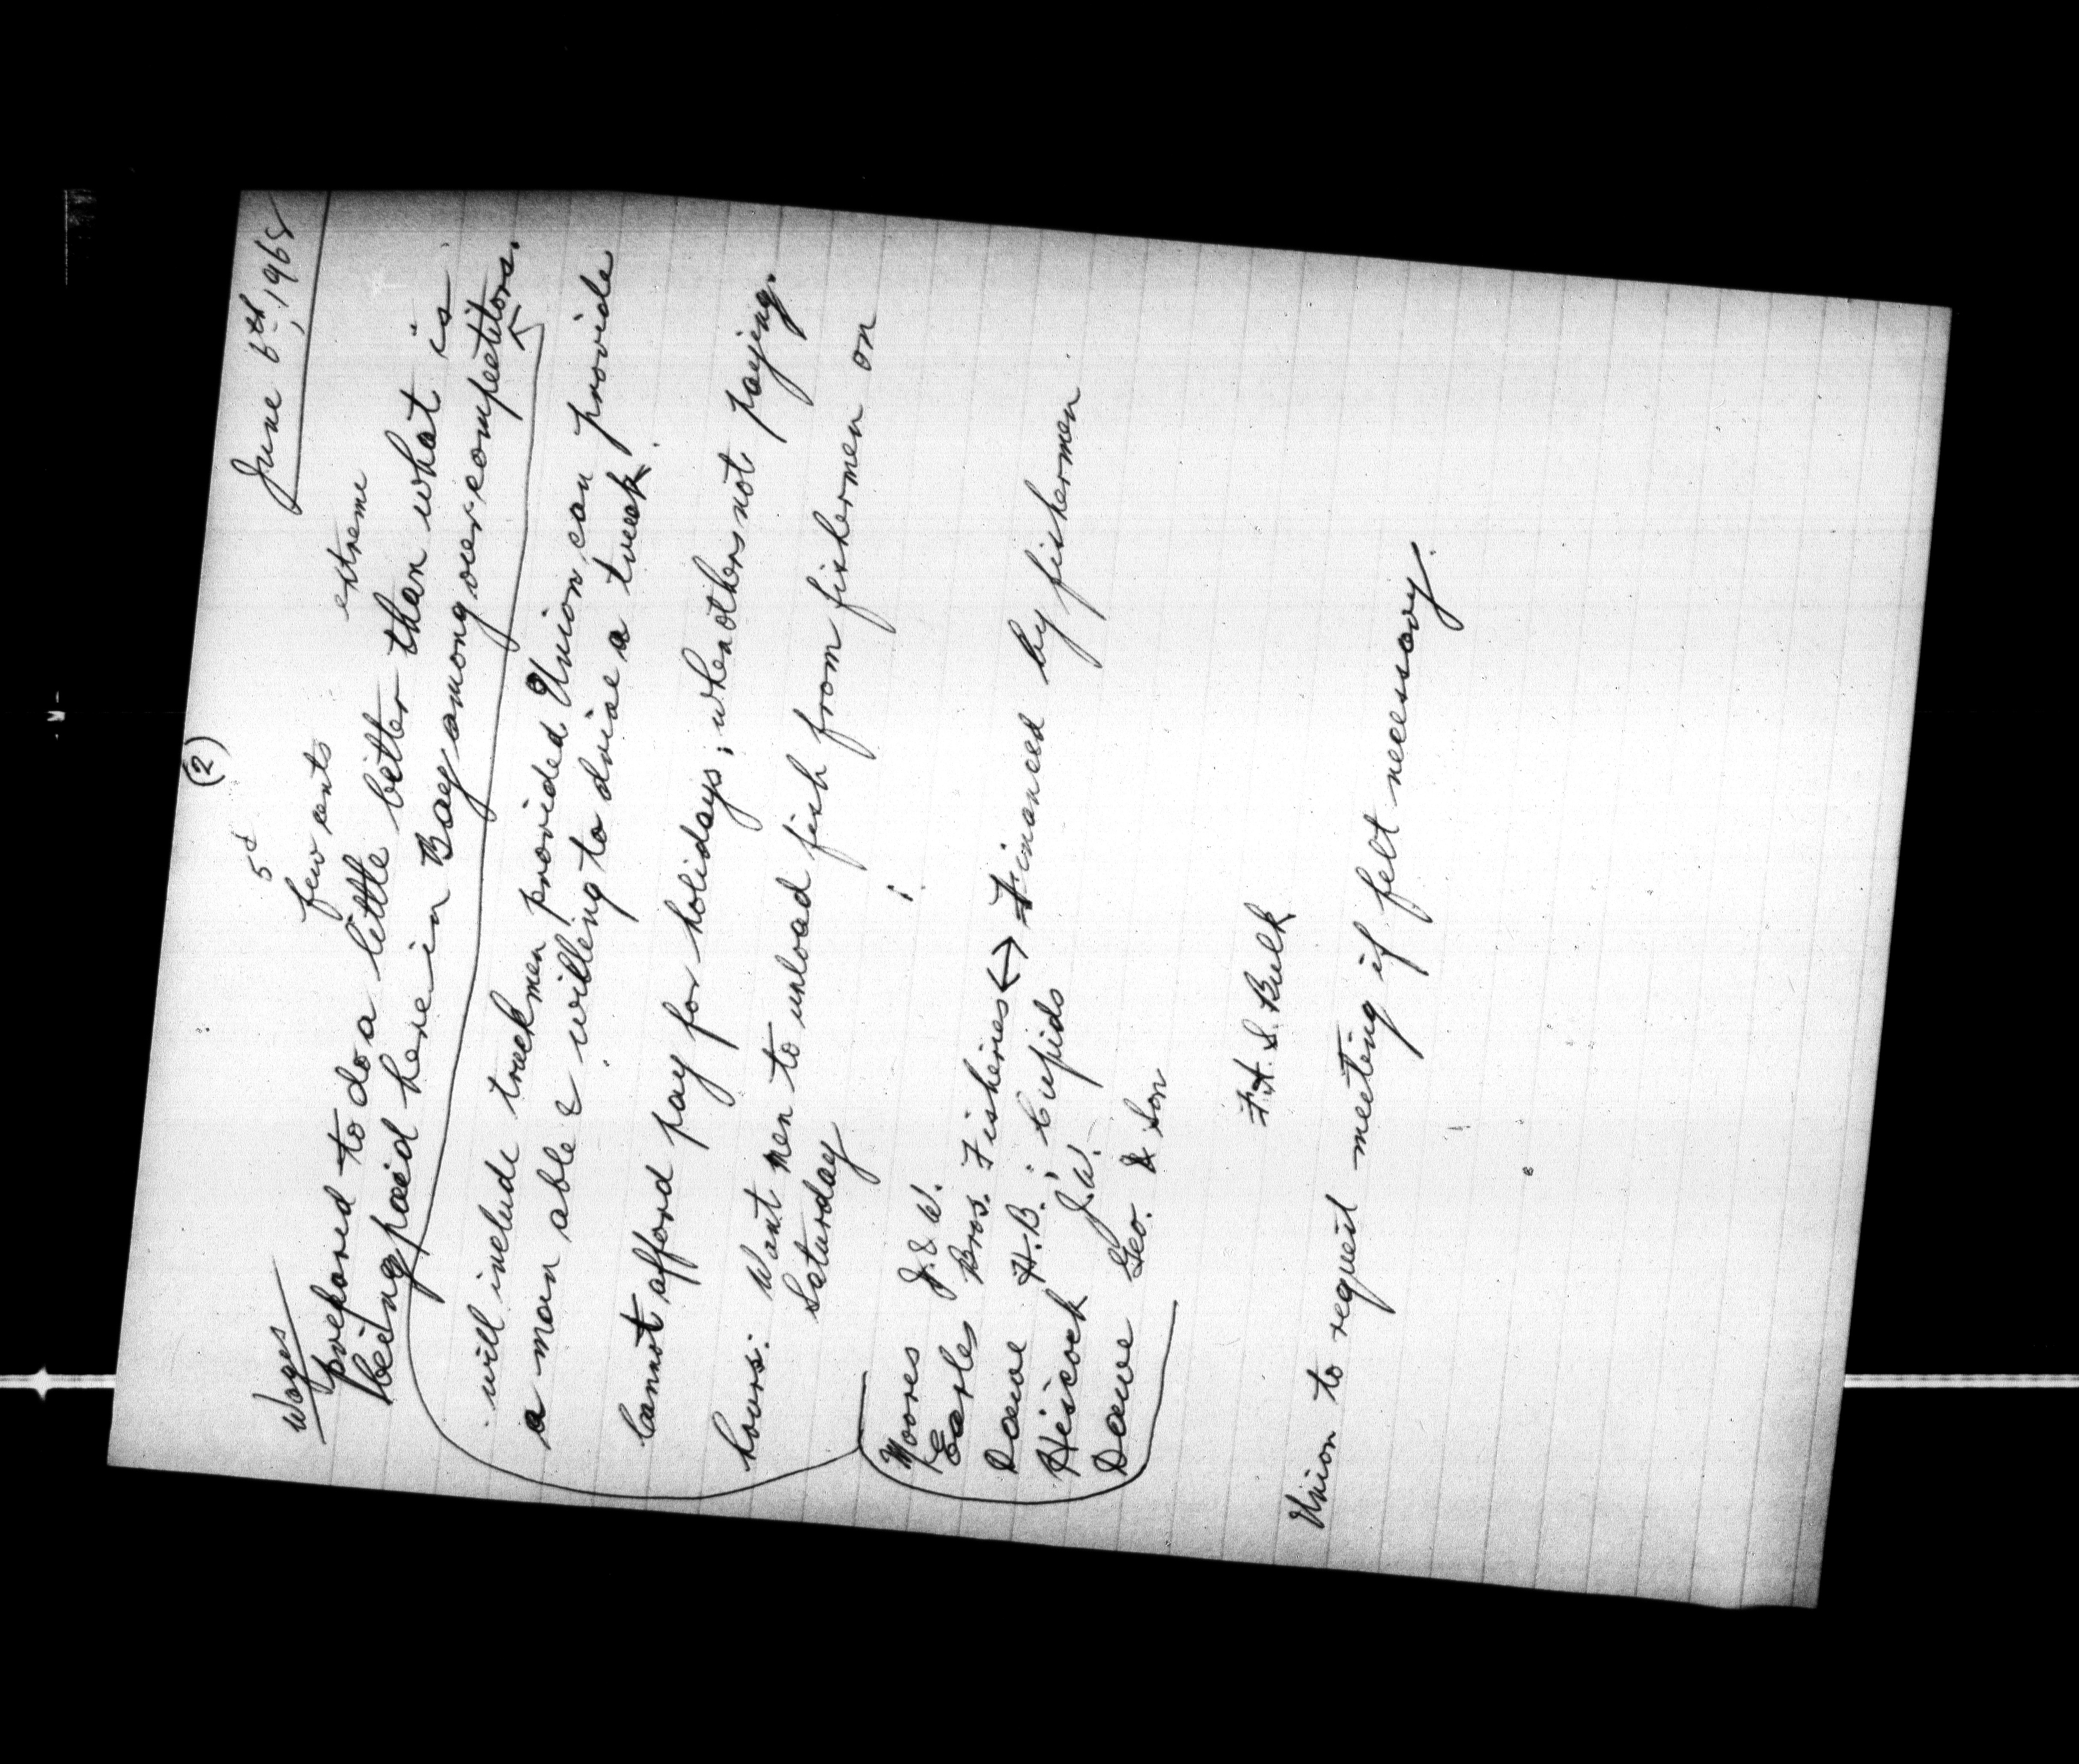 (2)
June 6th, 1968
Wages
5¢
few cents extreme
prepared to do a little better than what is
being paid here in Bay among our competitors.
will include truckmen provided Union can provide
a man able & willing to drive a truck.
Cannot afford pay for holidays; when others not paying.
hours: Want men to unload fish from fishermen on
Saturday
Moores J. & W.
Earles Bros. Fisheries ↔ Financed by fishermen
Dawe H.B.; Cupids
Hiscock J.W.
Dawe Geo. & Son
F.H.S. Bulk
Union to request meeting if felt necessary.